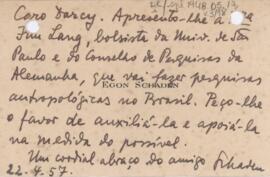 Caro Darcy. Apresento-lhe a
Lang, bolsista da Univ. de São
Paulo e do Conselho de Pesquisas da
Alemanha, que vai fazer pesquisas
antropológicas no Brasil. Peço-lhe
EGON SCHADEN
o favor de auxiliá-la e apoiá-la
na medida do possível.
Um cordial abraço do amigo Schaden
22.4.57